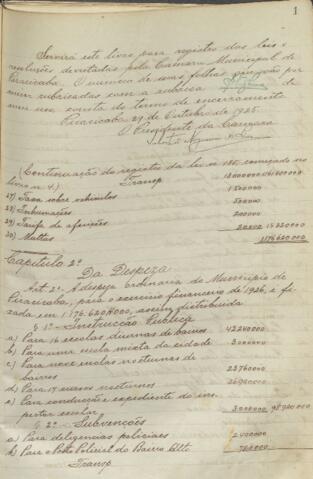 1
Servirá este livro para registro das leis e
resoluções decretadas pela Camara Municipal de
Piracicaba. O numero de suas folhas que vão por
mim rubricadas com a rubrica de
meu uso consta do termo de encerramento
Piracicaba 29 de Outubro de 1925.
O Presidente da Camara
(Continuação do registro da lei n. 185, começado no
livro n. 4.) Transp
27) Taxa sobre vehiculos
28) Inhumações 200000
29) Tarifa de aferições
30) Multas
1176620000
Capitulo 2º
Da Despeza
Art. 2º A despeza ordinaria do Municipio de
Piracicaba, para o exercicio financeiro de 1926, é fi-
xada em 1.176.620$000, assim distribuida
§ 1º Instrucção Publica
a) Para 16 escolas diurnas de bairros 42240000
b) Para uma escola mixta da cidade 3000000
c) Para nove escolas nocturnas de
bairros 23760000
d) Para 17 cursos nocturnos
e) Para conducção e expediente do ins-
pector escolar 3000000
§ 2º Subvenções
a) Para deligencias policiaes 2400000
b) Para o Posto Policial do Bairro Alto
Transp